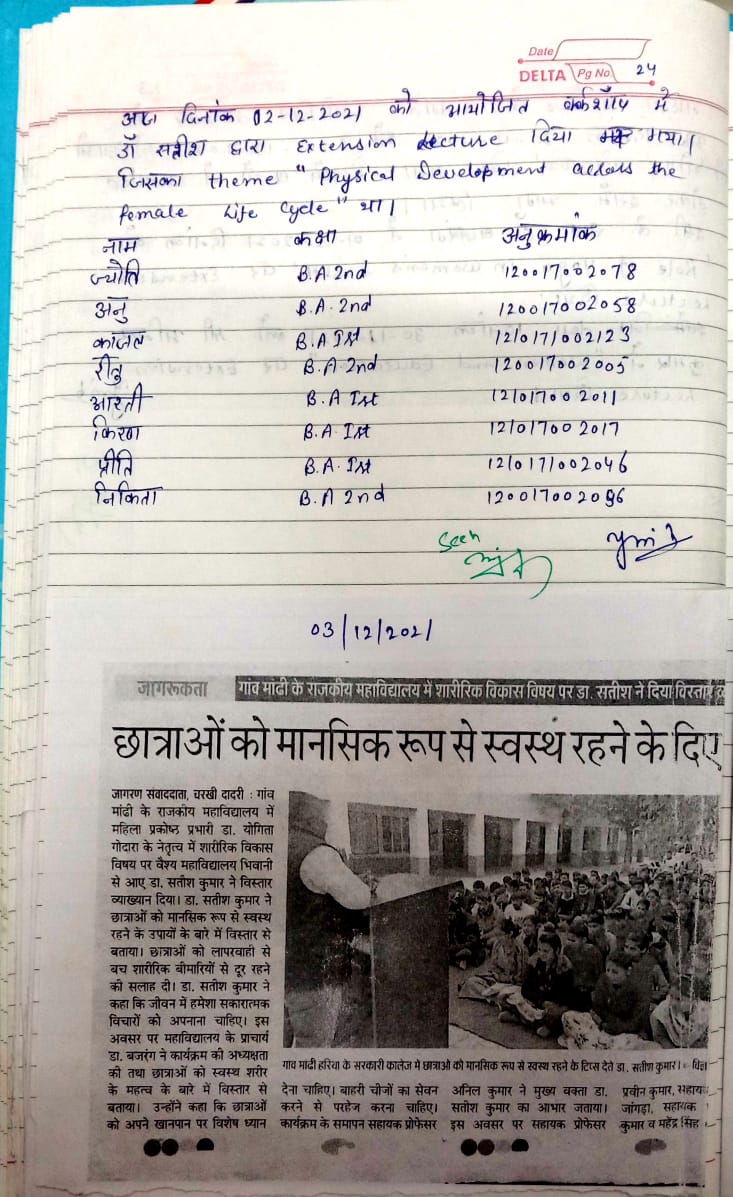 Date
DELTA Pg No 24
आज दिनांक 02-12-2021 को आयोजित वर्कशॉप में
डॉ सतीश द्वारा Extension Lecture दिया गया।
जिसका theme "Physical Development across the
female Life Cycle" था।
नाम कक्षा अनुक्रमांक
ज्योति B.A. 2nd 120017002078
अनु B.A. 2nd 120017002058
काजल B.A Ist 121017002123
रीतु B.A. 2nd 120017002005
आरती B.A Ist 121017002011
किरण B.A. Ist 121017002017
प्रीति B.A. Ist 121017002046
निकिता B.A 2nd
Seen
03/12/2021
जागरूकता गांव मांढी के राजकीय महाविद्यालय में शारीरिक विकास विषय पर डा. सतीश ने दिया विस्तार
छात्राओं को मानसिक रूप से स्वस्थ रहने के दिए
जागरण संवाददाता, चरखी दादरी : गांव
मांढी के राजकीय महाविद्यालय में
महिला प्रकोष्ठ प्रभारी डा. योगिता
गोदारा के नेतृत्व में शारीरिक विकास
विषय पर वैश्य महाविद्यालय भिवानी
से आए डा. सतीश कुमार ने विस्तार
व्याख्यान दिया। डा. सतीश कुमार ने
छात्राओं को मानसिक रूप से स्वस्थ
रहने के उपायों के बारे में विस्तार से
बताया। छात्राओं को लापरवाही से
बच शारीरिक बीमारियों से दूर रहने
की सलाह दी। डा. सतीश कुमार ने
कहा कि जीवन में हमेशा सकारात्मक
विचारों को अपनाना चाहिए। इस
अवसर पर महाविद्यालय के प्राचार्य
डा. बजरंग ने कार्यक्रम की अध्यक्षता
की तथा छात्राओं को स्वस्थ शरीर
के महत्व के बारे में विस्तार से
बताया। उन्होंने कहा कि छात्राओं
को अपने खानपान पर विशेष ध्यान
गांव मांढी हरिया के सरकारी कालेज में छात्राओं को मानसिक रूप से स्वस्थ रहने के टिप्स देते डा. सतीश कुमार।
देना चाहिए। बाहरी चीजों का सेवन
करने से परहेज करना चाहिए।
कार्यक्रम के समापन सहायक प्रोफेसर
अनिल कुमार ने मुख्य वक्ता डा.
सतीश कुमार का आभार जताया।
इस अवसर पर सहायक प्रोफेसर
प्रवीन कुमार, सहाय
जांगड़ा, सहायक
कुमार व महेंद्र सिंह